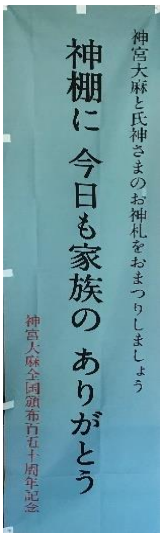 神宮大麻と氏神さまのお神札をおまつりしましょう
神棚に 今日も家族の ありがとう
神宮大麻全国頒布百五十周年記念